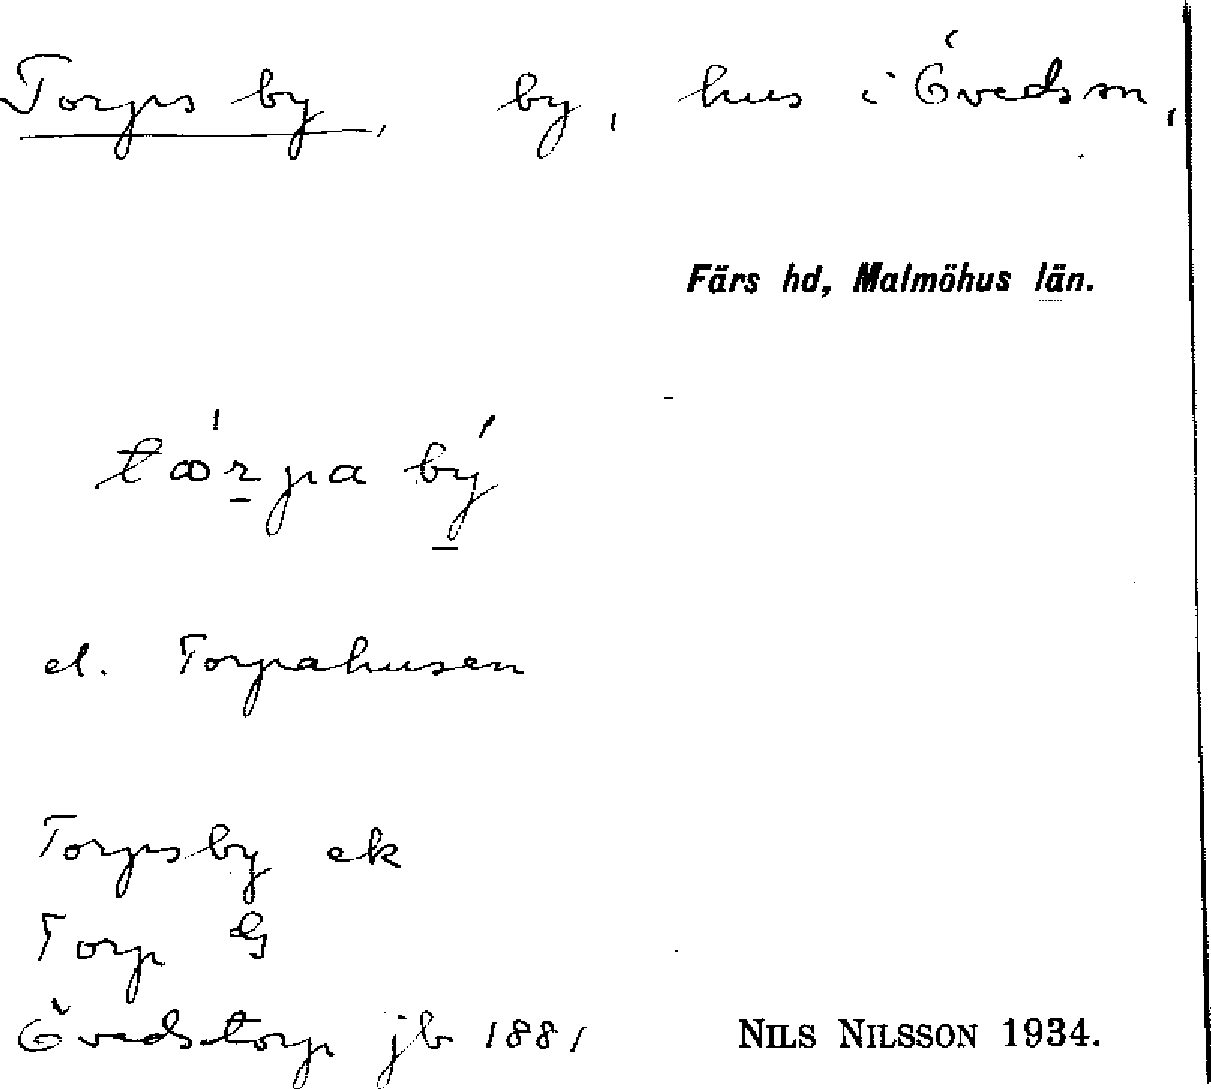 Torps by, by, hus i Öveds sn,
Färs hd, Malmöhus län.
tɷ́rpa bý
el. Torpahusen
Torpsby ek
Torp G
Övedstorp jb 1881
NILS NILSSON 1934.